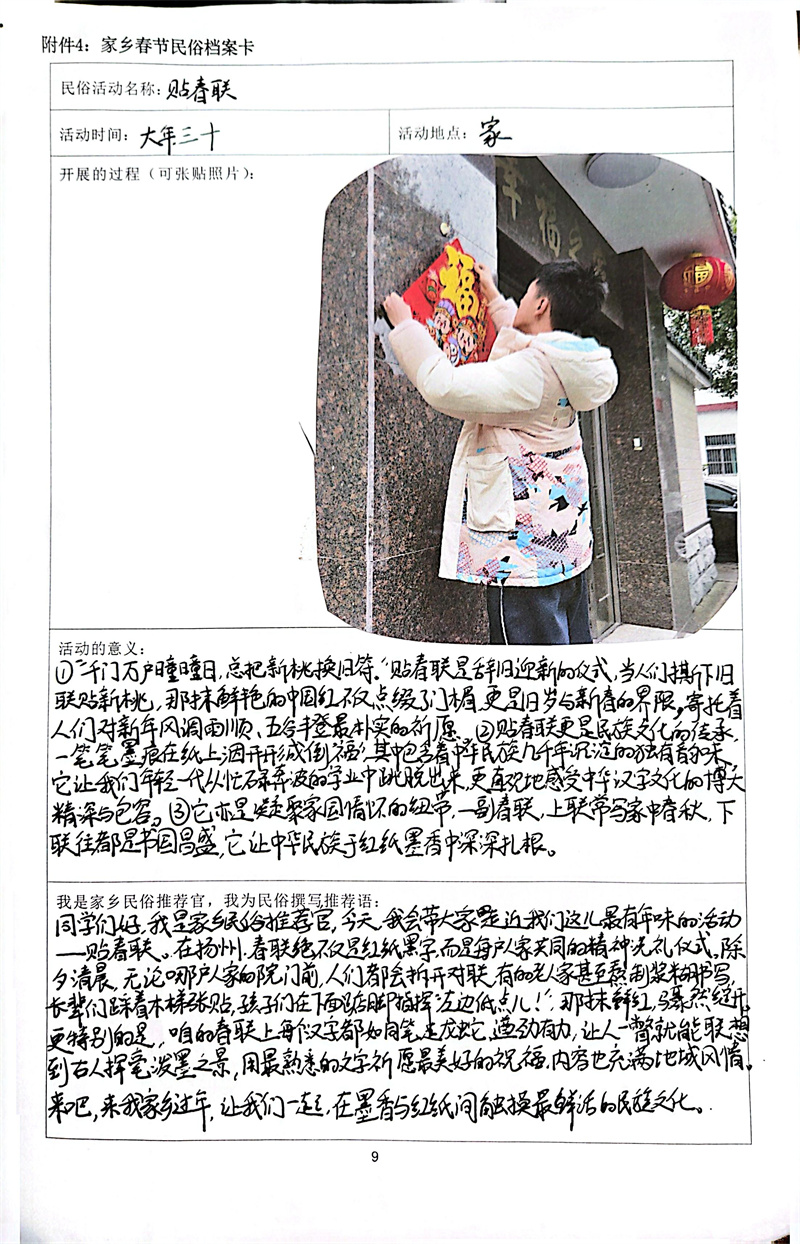 附件4：家乡春节民俗档案卡
民俗活动名称：贴春联
活动时间：大年三十
活动地点：家
开展的过程（可张贴照片）：
幸福之
福
福
活动的意义：
①“千门万户曈曈日，总把新桃换旧符。”贴春联是辞旧迎新的仪式，当人们揭下旧
联贴新桃，那抹鲜艳的中国红不仅点缀了门楣，更是旧岁与新春的界限，寄托着
人们对新年风调雨顺、五谷丰登最朴实的祈愿。②贴春联更是民族文化的传承，
一笔笔墨痕在纸上洇开形成倒“福”，其中包含着中华民族几千年沉淀的独有韵味，
它让我们年轻一代从忙碌奔波的学业中跳脱出来，更直观地感受中华汉字文化的博大
精深与包容。③它亦是凝聚家国情怀的纽带，一副春联，上联常写家中春秋，下
联往都是书国昌盛，它让中华民族于红纸墨香中深深扎根。
我是家乡民俗推荐官，我为民俗撰写推荐语：
同学们好，我是家乡民俗推荐官，今天，我会带大家走近我们这儿最有年味的活动
——贴春联。在扬州，春联绝不仅是红纸黑字，而是每户人家共同的精神洗礼仪式。除
夕清晨，无论哪户人家的院门前，人们都会拆开对联，有的老人家甚至熬制浆糊书写，
长辈们踩着木梯张贴，孩子们在下面踮脚指挥“左边低点儿！”，那抹鲜红，蓦然绽开。
更特别的是，咱的春联上每个汉字都如同笔走龙蛇，遒劲有力，让人一瞥就能联想
到古人挥毫泼墨之景，用最熟悉的文字祈愿最美好的祝福，内容也充满地域风情。
来吧，来我家乡过年，让我们一起，在墨香与红纸间触摸最鲜活的民族文化。
9